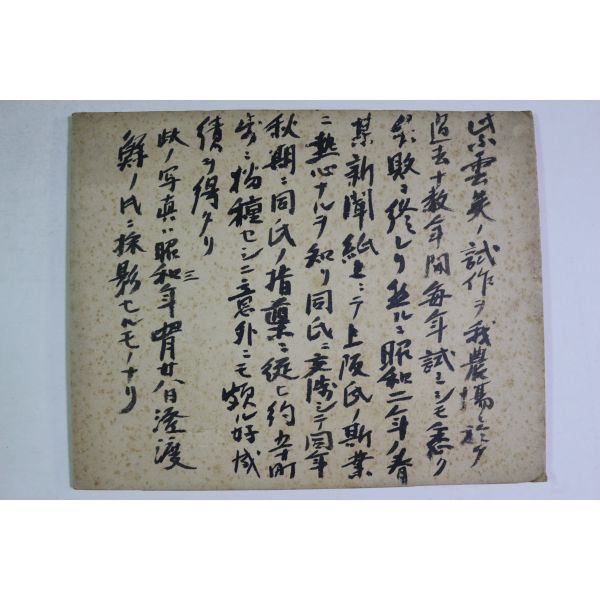 紫雲英ノ試作ヲ我農場ニ於テ
過去十数年間毎年試ミシモ悉ク
失敗ニ終レリ然ルニ昭和二年ノ春
某新聞紙上ニテ上阪氏ノ斯業
ニ熱心ナルヲ知リ同氏ニ交渉シテ同年
秋期ニ同氏ノ指導ニ従ヒ約町
歩ニ播種セシニ意外ニモ頗ル好成
績ヲ得タリ
此ノ写真ハ昭和三年月廿八日渡
鮮ノ氏ニ採影セルモノナリ